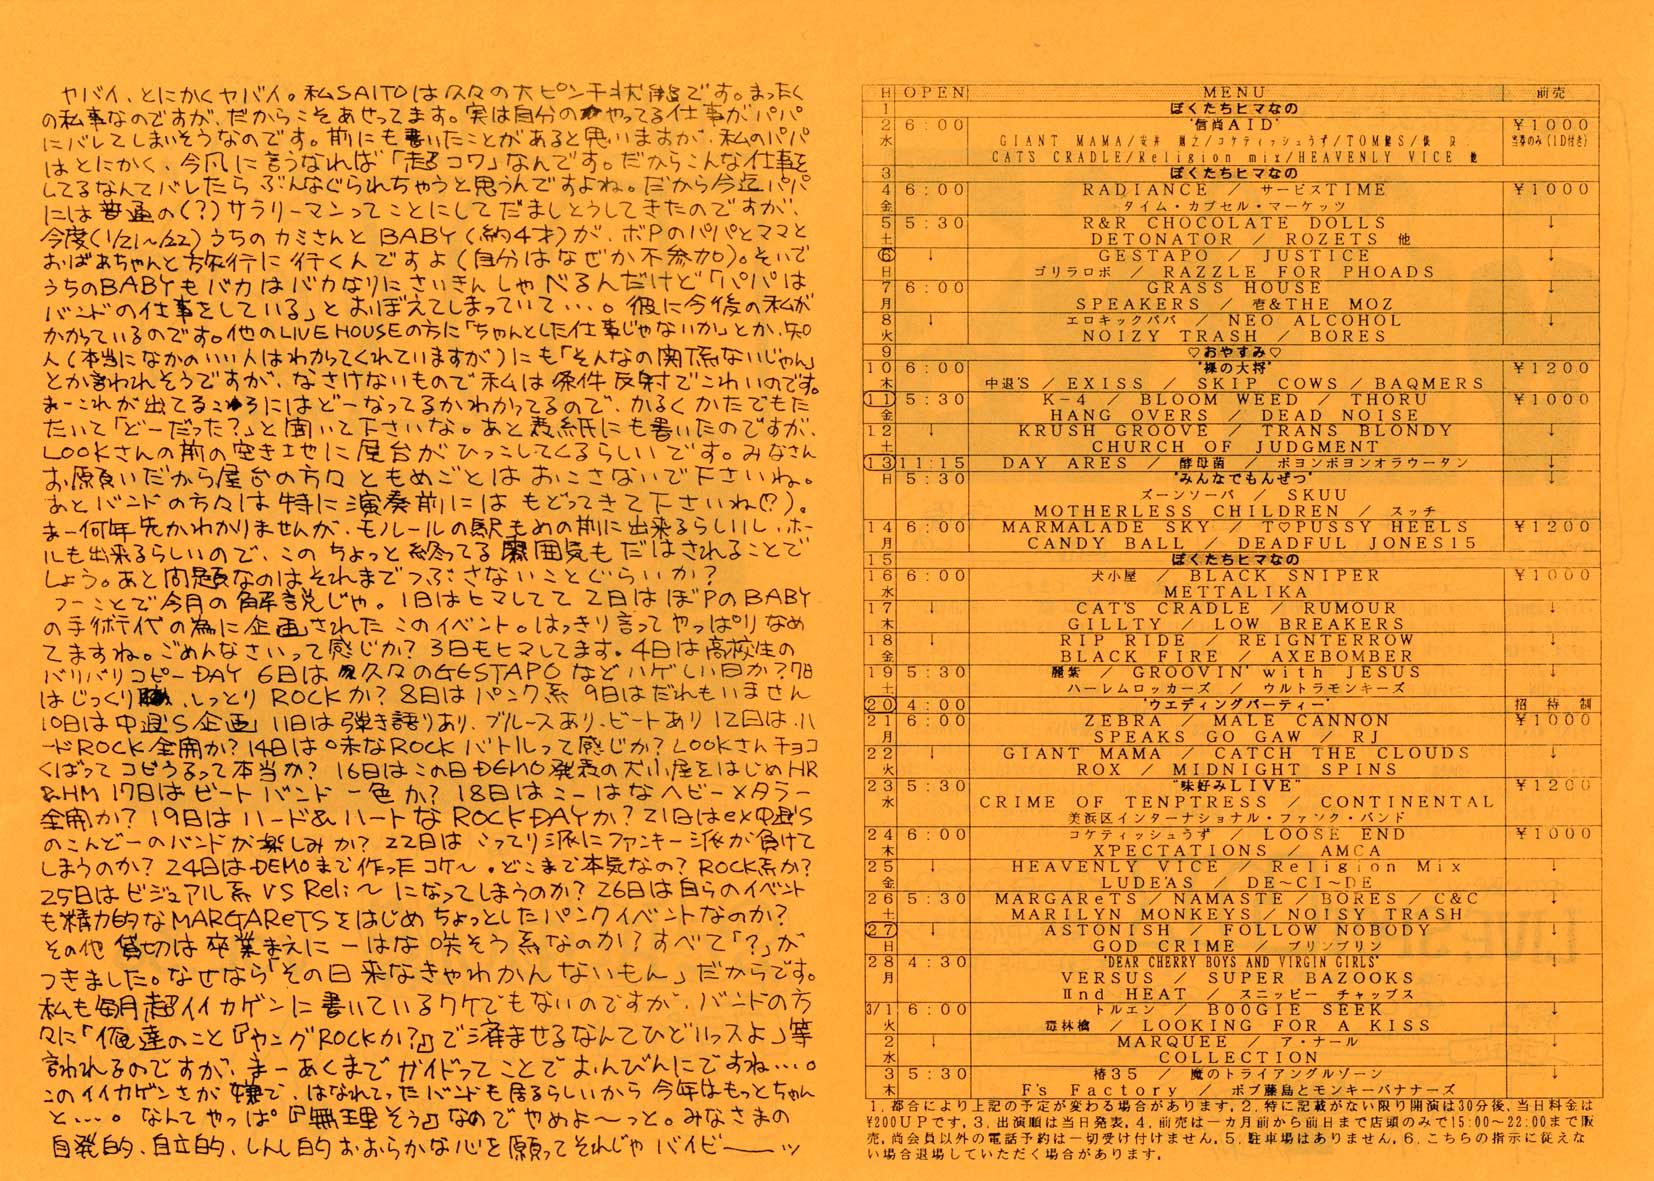 ヤバイ、とにかくヤバイ。私SAITOは久々の大ピンチ状態です。まったく
の私事なのですが、だからこそあせってます。実は自分のやってる仕事がパパ
にバレてしまいそうなのです。前にも書いたことがあると思いますが、私のパパ
はとにかく、今風に言うなれば「超コワ」なんです。だからこんな仕事を
してるなんてバレたら ぶんなぐられちゃうと思うんですよね。だから今迄パパ
には普通の(?)サラリーマンってことにしてだましとうしてきたのですが、
今度(1/21~1/22)うちのカミさんとBABY(約4才)が、ボPのパパとママと
おばあちゃんと旅行に行くんですよ(自分はなぜか不参加)。そいで
うちのBABYもバカはバカなりにさいきんしゃべるんだけど「パパは
バンドの仕事をしている」とおぼえてしまっていて…。彼に今後の私が
かかっているのです。他のLIVE HOUSEの方に「ちゃんとした仕事じゃないか」とか、知
人(本当になかのいい人はわかってくれていますが)にも「そんなの関係ないじゃん」
とか言われそうですが、なさけないもので私は条件反射でこわいのです。
まーこれが出てるころにはどーなってるかわかってるので、かるくかたでもた
たいて「どーだった?」と聞いて下さいな。あと表紙にも書いたのですが、
LOOKさんの前の空き地に屋台がひっこしてくるらしいです。みなさん
お願いだから屋台の方々ともめごとはおこさないで下さいね。
あとバンドの方々は特に演奏前にはもどってきて下さいね(!?)。
まー何年先かわかりませんが、モノレールの駅もめの前に出来るらしいし、ホー
ルも出来るらしいので、このちょっと終ってる雰囲気もだはされることで
しょう。あと問題なのはそれまでつぶさないことぐらいか?
つーことで今月の解説じゃ。1日はヒマしてて2日はぼPのBABY
の手術代の為に企画されたこのイベント。はっきり言ってやっぱりなめ
てますね。ごめんなさいって感じか?3日もヒマしてます。4日は高校生の
バリバリコピーDAY 6日は久々のGESTAPOなどハゲしい日か?7日
はじっくり、しっとりROCKか?8日はパンク系 9日はだれもいません
10日は中退'S企画 11日は弾き語りあり、ブルースあり、ビートあり12日は、ハ
ードROCK全開か?14日は味なROCKバトルって感じか?LOOKさんチョコ
くばってコビうるって本当か? 16日はこの日DEMO発表の犬小屋をはじめHR
&HM 17日はビートバンド一色か? 18日はミーはなヘビーメタラー
全開か? 19日はハード&ハートなROCKDAYか?21日はex中退'S
のこんどーのバンドが楽しみか? 22日は こってり派にファンキー派が負けて
しまうのか? 24日はDEMOまで作ったコケ〜。どこまで本気なの? ROCK系か?
25日はビジュアル系 VS Reli〜になってしまうのか? 26日は自らのイベント
も精力的なMARGAReTSをはじめちょっとしたパンクイベントなのか?
その他 貸切は卒業まえに一はな咲そう系なのか?すべて「?」が
つきました。なせなら「その日来なきゃわかんないもん」だからです。
私も毎月超イイカゲンに書いているワケでもないのですが、バンドの方
々に「俺達のこと『ヤングROCKか?』で済ませるなんてひどいっスよ」等
言われるのですが、まーあくまでガイドってことでおんびんにですね…。
このイイカゲンさが嫌で、はなれてったバンドも居るらしいから今年はもっとちゃん
と…。なんてやっぱ『無理そう』なのでやめよ〜っと。みなさまの
自発的、自立的、しんし的おおらかな心を願ってそれじゃバイビー――ッ
日 OPEN MENU 前売
1 ぼくたちヒマなの
2 水 6:00 "信尚AID" ¥1000
GIANT MAMA/安井 剛之/コケティッシュうず/TOM健S/ 当券のみ(1D付き)
CATS CRADLE/Religion mix/HEAVENLY VICE 他
3 ぼくたちヒマなの
4 金 6:00 RADIANCE / サービスTIME ¥1000
タイム・カプセル・マーケッツ
5 土 5:30 R&R CHOCOLATE DOLLS ↓
DETONATOR / ROZETS 他
6 日 ↓ GESTAPO / JUSTICE ↓
ゴリラロボ / RAZZLE FOR PHOADS
7 月 6:00 GRASS HOUSE ↓
SPEAKERS / 壱&THE MOZ
8 火 ↓ エロキックパパ / NEO ALCOHOL ↓
NOIZY TRASH / BORES
9 ♡おやすみ♡
10 木 6:00 "裸の大将" ¥1200
中退'S / EXISS / SKIP COWS / BAQMERS
11 金 5:30 K-4 / BLOOM WEED / THORU ¥1000
HANG OVERS / DEAD NOISE
12 土 ↓ KRUSH GROOVE / TRANS BLONDY ↓
CHURCH OF JUDGMENT
13 日 11:15 DAY ARES / 酵母菌 / ボヨンボヨンオラウータン ↓
5:30 "みんなでもんぜつ" ↓
ズーンソーバ / SKUU
MOTHERLESS CHILDREN / スッチ
14 月 6:00 MARMALADE SKY / T♡PUSSY HEELS ¥1200
CANDY BALL / DEADFUL JONES15
15 ぼくたちヒマなの
16 水 6:00 犬小屋 / BLACK SNIPER ¥1000
METTALIKA
17 木 ↓ CATS CRADLE / RUMOUR ↓
GILLTY / LOW BREAKERS
18 金 ↓ RIP RIDE / REIGNTERROW ↓
BLACK FIRE / AXEBOMBER
19 土 5:30 麗紫 / GROOVIN' with JESUS ↓
ハーレムロッカーズ / ウルトラモンキーズ
20 4:00 "ウエディングパーティー" 招待制
21 月 6:00 ZEBRA / MALE CANNON ¥1000
SPEAKS GO GAW / RJ
22 火 ↓ GIANT MAMA / CATCH THE CLOUDS ↓
ROX / MIDNIGHT SPINS
23 水 5:30 "味好みLIVE" ¥1200
CRIME OF TENPTRESS / CONTINENTAL
美浜区インターナショナル・ファンク・バンド
24 木 6:00 コケティッシュうず / LOOSE END ¥1000
XPECTATIONS / AMCA
25 金 ↓ HEAVENLY VICE / Religion Mix ↓
LUDE'AS / DE~CI~DE
26 土 5:30 MARGAReTS / NAMASTE / BORES / C&C ↓
MARILYN MONKEYS / NOISY TRASH
27 日 ↓ ASTONISH / FOLLOW NOBODY ↓
GOD CRIME / プリンプリン
28 月 4:30 "DEAR CHERRY BOYS AND VIRGIN GIRLS" ↓
VERSUS / SUPER BAZOOKS
Ⅱnd HEAT / スニッピー チャップス
3/1 火 6:00 トルエン / BOOGIE SEEK ↓
毒林檎 / LOOKING FOR A KISS
2 水 ↓ MARQUEE / ア・ナール ↓
COLLECTION
3 木 5:30 椿35 / 魔のトライアングルゾーン ↓
F's Factory / ボブ藤島とモンキーバナナーズ
1.都合により上記の予定が変わる場合があります,2.特に記載がない限り開演は30分後,当日料金は
¥200UPです,3.出演順は当日発表,4.前売は一カ月前から前日まで店頭のみで15:00~22:00まで販
売,尚会員以外の電話予約は一切受け付けません,5.駐車場はありません,6.こちらの指示に従えな
い場合退場していただく場合があります.